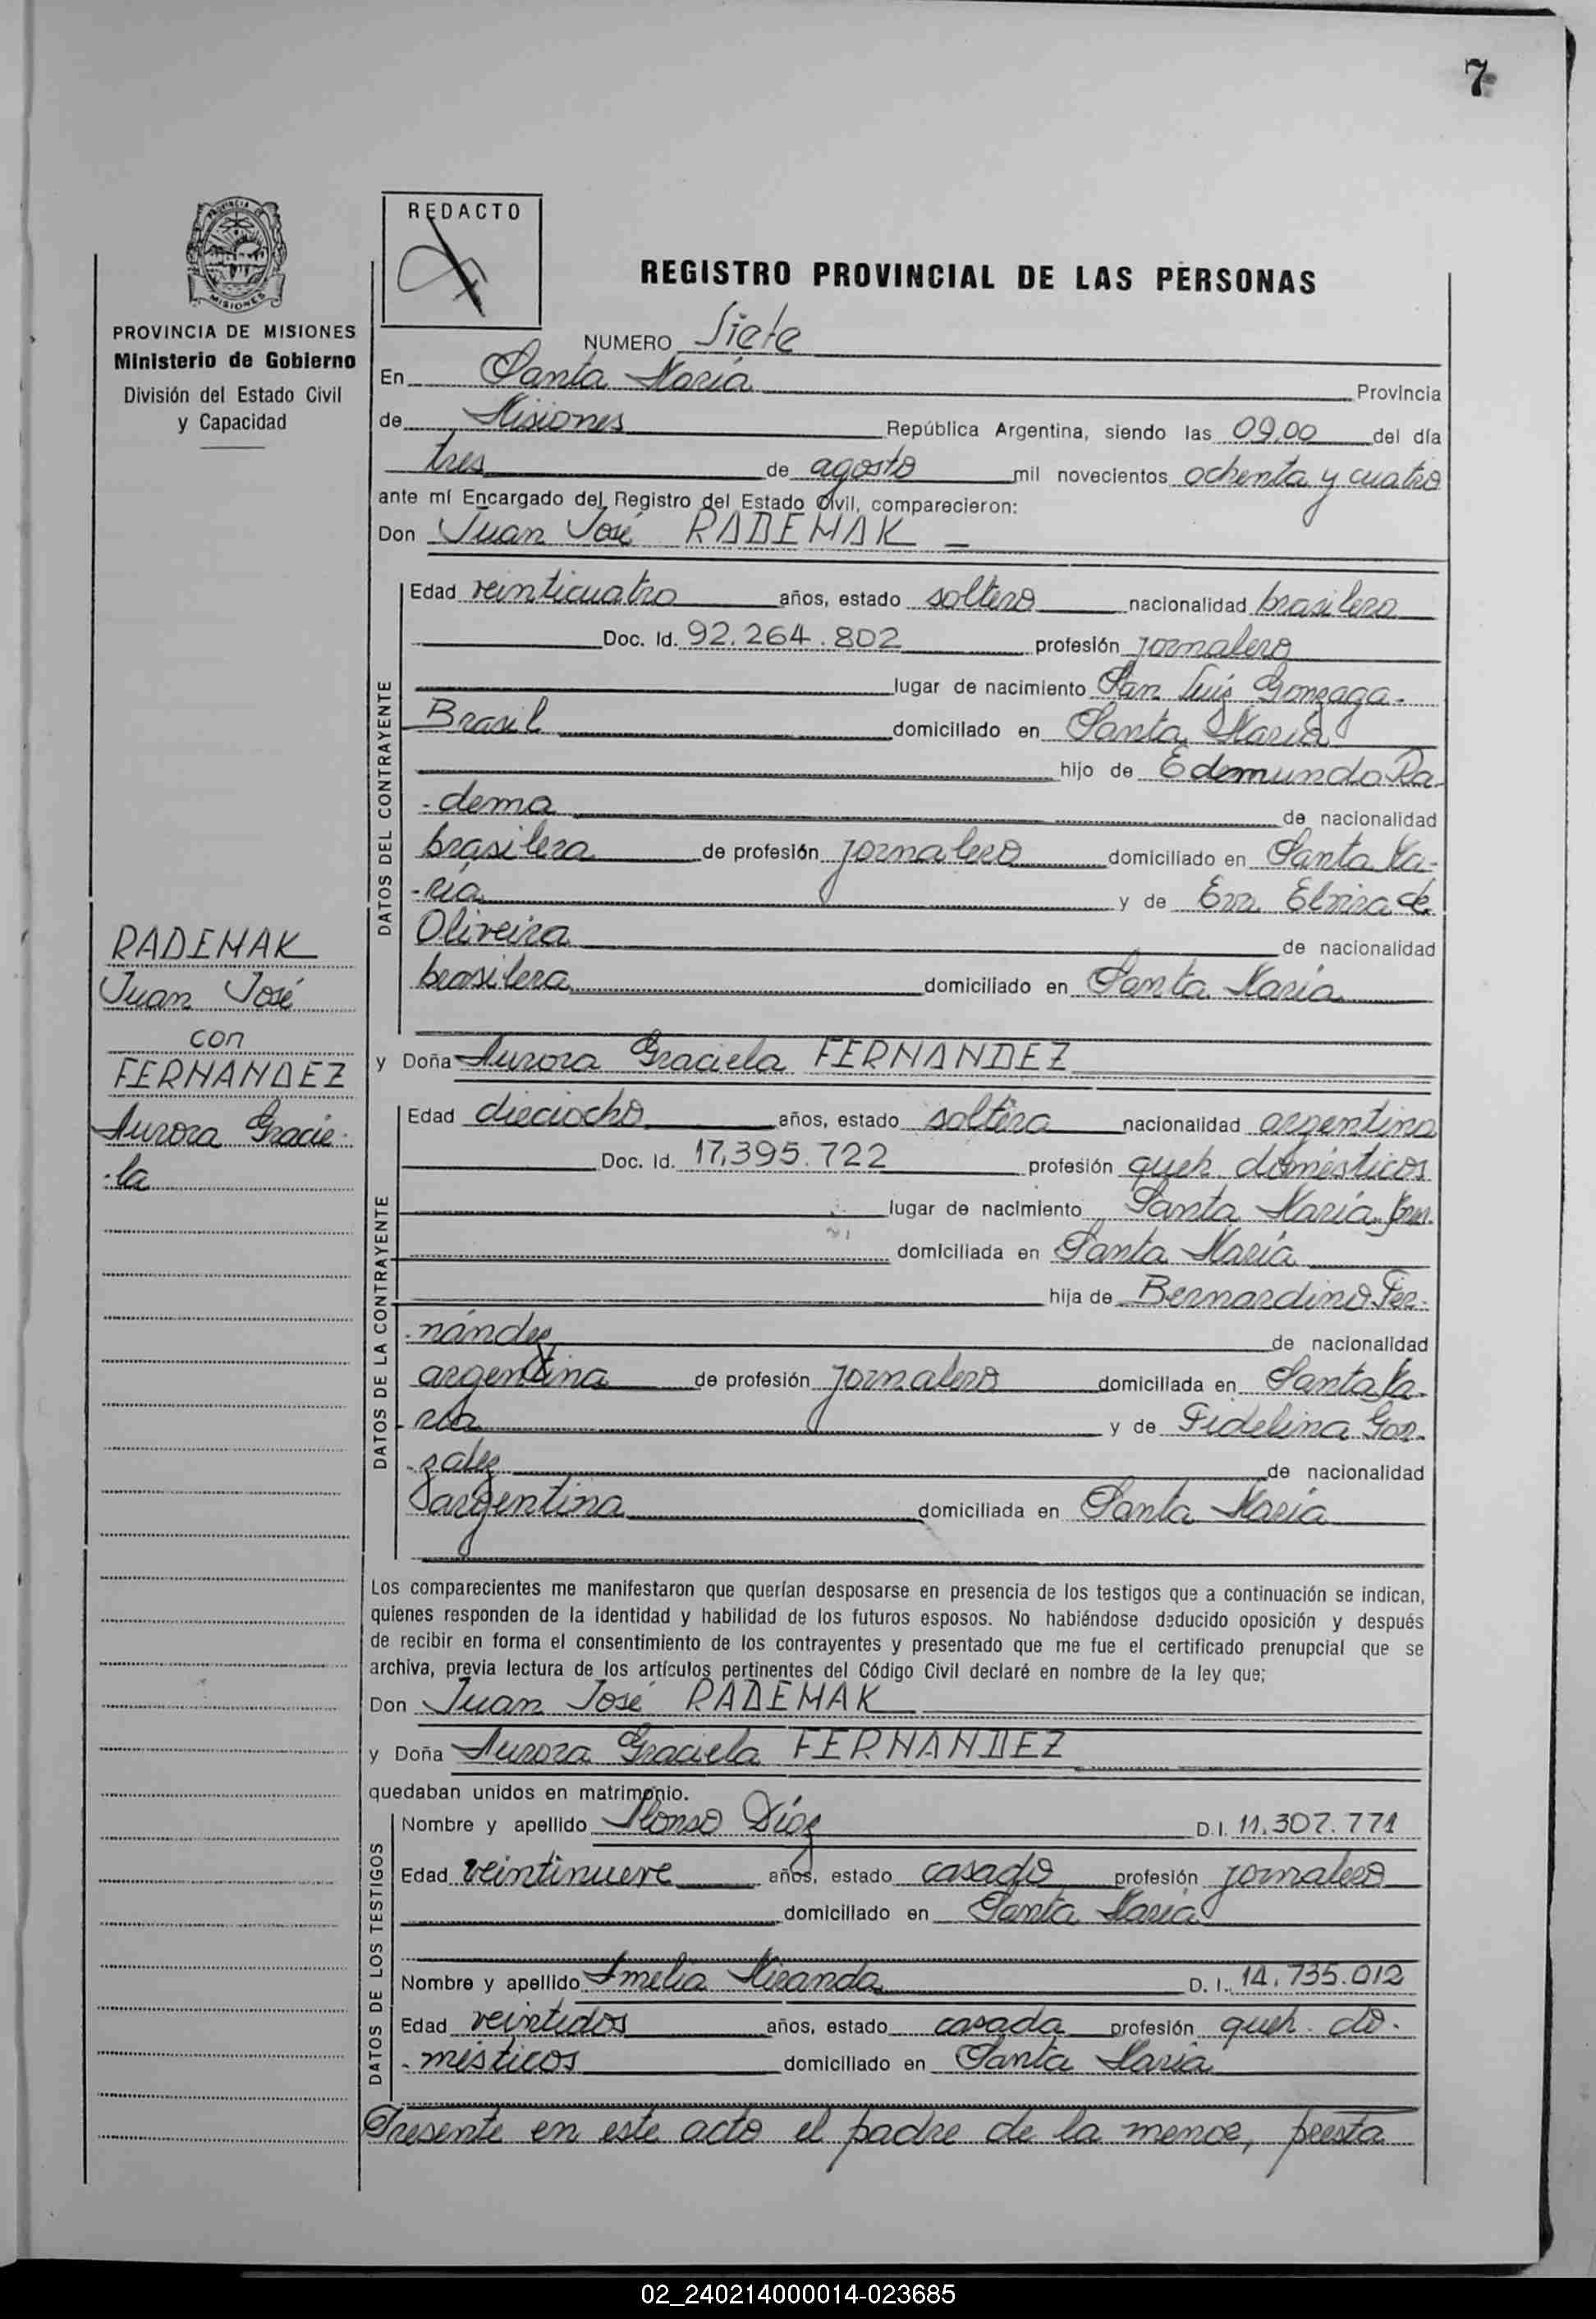 7
REDACTO
PROVINCIA DE
MISIONES
PROVINCIA DE MISIONES
Ministerio de Gobierno
División del Estado Civil
y Capacidad
REGISTRO PROVINCIAL DE LAS PERSONAS
NUMERO Siete
En Santa María Provincia
de Misiones República Argentina, siendo las 09,00 del día
tres de agosto mil novecientos ochenta y cuatro
ante mí Encargado del Registro del Estado Civil, comparecieron:
Don Juan José RADEMAK
DATOS DEL CONTRAYENTE
Edad veinticuatro años, estado soltero nacionalidad brasilera
Doc. Id. 92.264.802 profesión jornalero
lugar de nacimiento San Luis Gonzaga-
Brasil domiciliado en Santa María
hijo de Edemundo Ra-
-dema de nacionalidad
brasilera de profesión jornalero domiciliado en Santa Ma-
-ría y de Elvira de
Oliveira de nacionalidad
brasilera domiciliado en Santa María
RADEMAK
Juan José
con
FERNANDEZ
Aurora Gracie-
-la
y Doña Aurora Graciela FERNANDEZ
DATOS DE LA CONTRAYENTE
Edad dieciocho años, estado soltera nacionalidad argentina
Doc. Id. 17,395.722 profesión queh. domésticos
lugar de nacimiento Santa María
domiciliada en Santa María
hija de Bernardino Fer-
-nández de nacionalidad
argentina de profesión jornalero domiciliada en Santa Ma-
-ría y de Fidelina Gon-
-zalez de nacionalidad
argentina domiciliada en Santa María
Los comparecientes me manifestaron que querían desposarse en presencia de los testigos que a continuación se indican,
quienes responden de la identidad y habilidad de los futuros esposos. No habiéndose deducido oposición y después
de recibir en forma el consentimiento de los contrayentes y presentado que me fue el certificado prenupcial que se
archiva, previa lectura de los artículos pertinentes del Código Civil declaré en nombre de la ley que;
Don Juan José RADEMAK
y Doña Aurora Graciela FERNANDEZ
quedaban unidos en matrimonio.
DATOS DE LOS TESTIGOS
Nombre y apellido Alonso Díaz D.I. 11.307.771
Edad veintinueve años, estado casado profesión jornalero
domiciliado en Santa María
Nombre y apellido Amelia Miranda D. I. 14.735.012
Edad veintidos años, estado casada profesión queh. do-
-mésticos domiciliado en Santa María
Presente en este acto el padre de la menor, presta
02_240214000014-023685